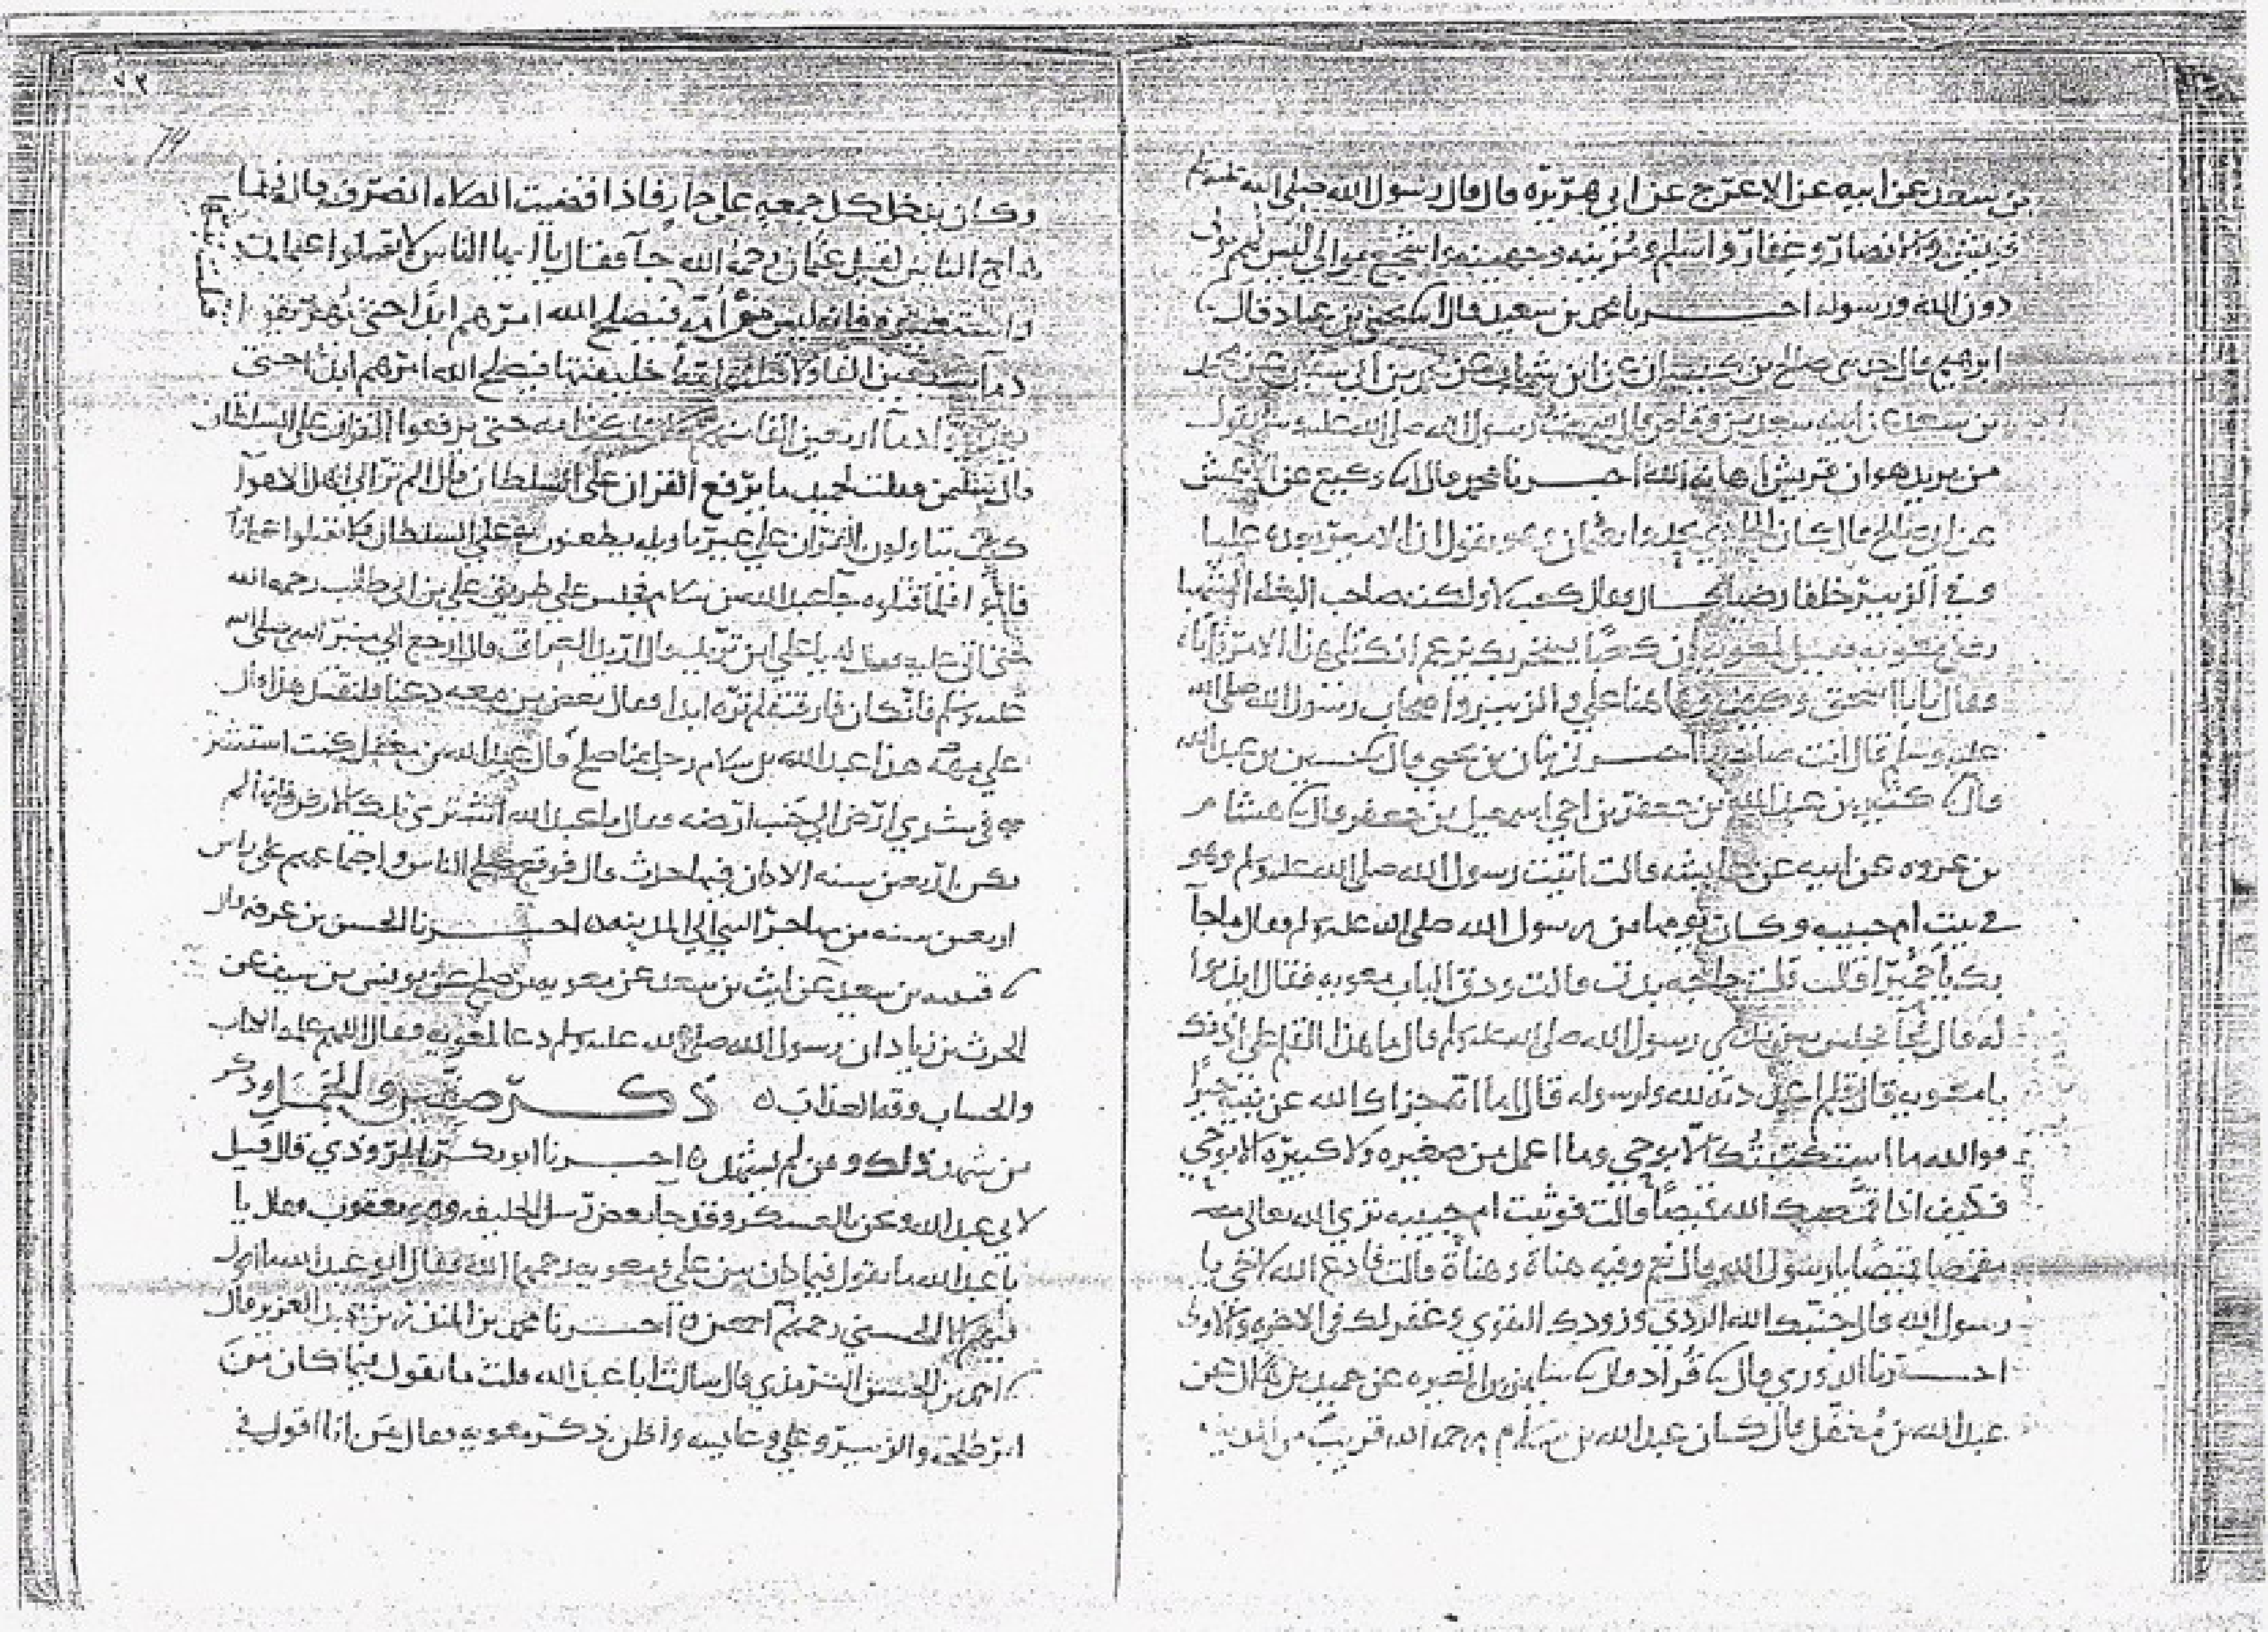 بن سعد عن ابيه عن الاعرج عن ابي هريرة قال قال رسول الله صلى الله عليه وسلم
قريش والانصار وغفار واسلم ومزينه وجهينه واشجع موالي ليس لهم مولى
دون الله ورسوله اخبرنا محمد بن سعيد قال
ابرهيم قال حدثني صالح بن كيسان عن ابن شهاب عن محمد بن ابي سفين عن محمد
بن سعد عن ابيه سعد بن وقاص قال سمعت رسول الله صلى الله عليه وسلم يقول
من يريد هوان قريش اهانه الله اخبرنا محمد قال وكيع عن الاعمش
عن ابي صالح قال كان الحادي يحدوا بعثمان وهو يقول ان الامير بعده عليا
وفي الزبير خلفا رضيا قال فقال كعب لا ولكنه صاحب البغله الشهبا
يعني معويه فقيل لمعويه ان كعبا يسخر بك يزعم انك تلي هذا الامر قال فاتاه
فقال يابا اسحق وكيف وها هنا علي والزبير واصحاب رسول الله صلى الله
عليه وسلم قال انت صاحبها اخبرنا
قال عبد الله بن جعفر بن اخي اسمعيل بن جعفر قال هشام
بن عروه عن ابيه عن عايشه قالت اتيت رسول الله صلى الله عليه وسلم وهو
في بيت ام حبيبه وكان يومها من رسول الله صلى الله عليه وسلم فقال ما جآ
بك يا حميرا قالت قلت حاجه بدت قالت ودق الباب معويه فقال ايذنوا
له قال فجآ فجلس بين يدي رسول الله صلى الله عليه وسلم قال ما هذا القلم على اذنك
يا معويه قال قلم اعددته لله ولرسوله قال اما انه جزاك الله عن نبيه خيرا
فوالله ما استكتبتك الا بوحي وما اعمل من صغيره ولا كبيره الا بوحي
فكيف اذا قمصك الله قميصا قالت فوثبت ام حبيبه تري الله تعالى
مقمصا قميصا يا رسول الله قال نعم وفيه هناة وهناة قالت فادع الله لاخي يا
رسول الله قال جنبك الله الردي وزودك التقوي وغفر لك في الاخره والاولى
اخبرنا الدوري قال قراد قال سليمن بن المغيره عن حميد بن هلال عن
عبد الله بن مغفل قال كان عبد الله بن سلام رحمه الله قريب من المدينه
٧٣
74
وكان يدخل كل جمعه على حمار فاذا قضيت الصلاه انصرف قال فلما
هاج الناس لقتل عثمان رحمه الله جآ فقال يا ايها الناس لا تقتلوا عثمان
واستعتبوه فانه ليس امه فيصلح الله امرهم ابدا حتى يهريقوا
دمآ سبعين الفا ولا قتلت امة خليفتها فيصلح الله امرهم ابدا حتى
يهريقوا دمآ اربعين الفا حتى يرفعوا القران على السلطان
قال سليمن فقلت لحميد ما يرفع القران على السلطان قال الم تر الى اهل الاهوا
كيف يتاولون القران على غير تاويله يطعنون به على السلطان لا تقتلوا عثمان
قال فلما قتلوه جآ عبد الله بن سلام فجلس على طريق علي بن ابي طالب رحمه الله
حتى اتى عليه فقال له يا علي اين تريد قال اريد العراق قال ارجع الى منبر النبي صلى الله
عليه وسلم فانك ان فارقته لم تره ابدا فقال بعض من معه دعنا فلنقتل هذا قال
علي مه هذا عبد الله بن سلام رجل منا صالح قال عبد الله بن مغفل كنت استشر
ته في شري ارض الى جنب ارضه فقال يا عبد الله اشتري تلك الارض فانه لم
تكن اربعين سنه الا كان فيها حدث قال فوقع صلح الناس واجتماعهم على راس
اربعين سنه من مهاجر النبي الى المدينه اخبرنا الحسن بن عرفه قال
قتيبه بن سعيد عن ليث بن سعد عن معويه بن صلح عن يونس بن سيف عن
الحرث بن زياد ان رسول الله صلى الله عليه وسلم دعا لمعويه فقال اللهم علمه الكتاب
والحساب وقه العذاب ذكر صفين والجمل وذكر
من شهد ذلك ومن لم يشهد اخبرنا ابو بكر المروذي قال قيل
لابي عبد الله ونحن بالعسكر وقد جا بعض رسل الخليفه وهو يعقوب فقال يا
با عبد الله ما تقول فيما كان من علي ومعويه رحمهما الله فقال ابو عبد الله ما اقول
فيهم الا الحسنى رحمهم الله اجمعين اخبرنا محمد بن المنذر بن عبد العزيز قال
احمد بن الحسن الترمذي قال سالت ابا عبد الله قلت ما تقول فيما كان من
امر طلحه والزبير وعلي وعايشه واظن ذكر معويه فقال من انا اقول في